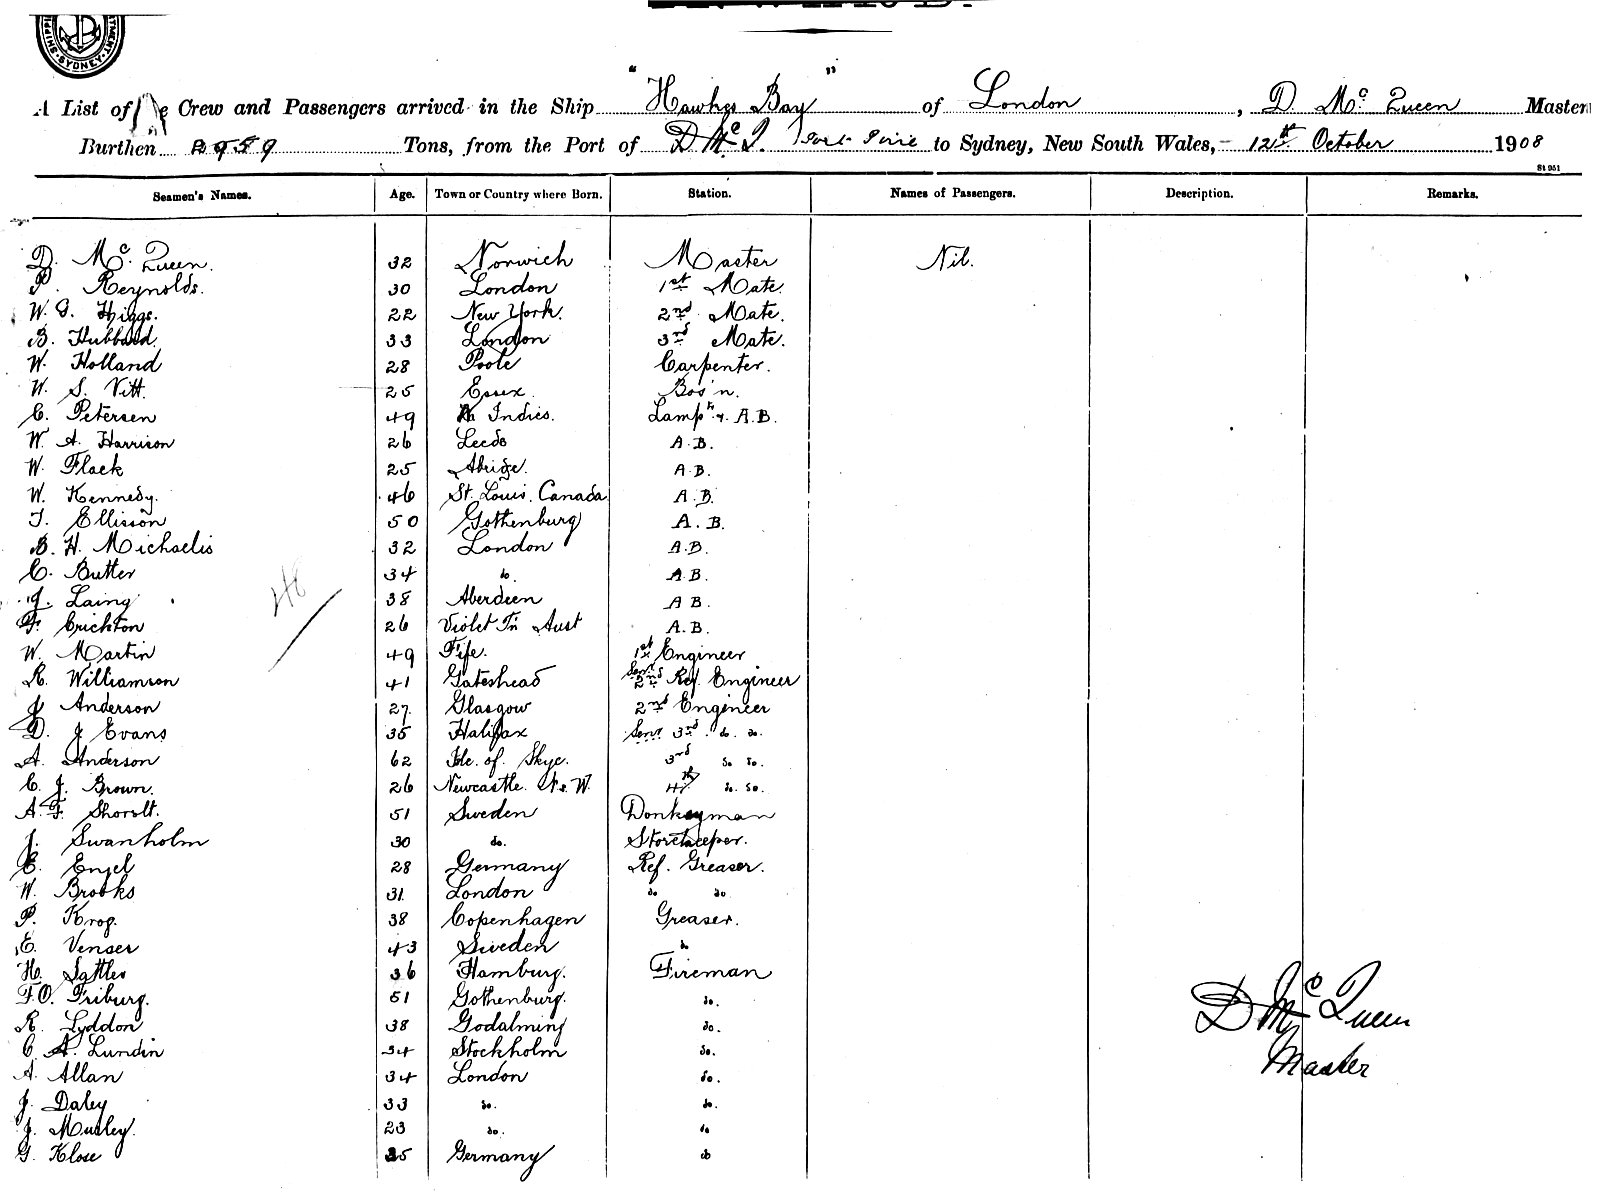 SYDNEY
A List of the Crew and Passengers arrived in the Ship "Hawkes Bay" of London, D. Mc Queen Master
Burthen 4959 Tons, from the Port of Port Pirie to Sydney, New South Wales, 12th October 1908
St 951
Seamen's Names. Age. Town or Country where Born. Station. Names of Passengers. Description. Remarks.
D. Mc. Queen. 32 Norwich Master Nil.
P. Reynolds. 30 London 1st Mate.
W. G. Higgs. 22 New York. 2nd Mate.
B. Hubbard. 33 London 3rd Mate.
W. Holland 28 Poole Carpenter.
W. S. Vitt. 25 Essex. Bos'n.
C. Petersen 49 W Indies. Lampt. & A.B.
W. A. Harrison 26 Leeds A.B.
W. Flack 25 Abridge. A.B.
W. Kennedy. 46 St. Louis. Canada A.B.
T. Ellisson 50 Gothenburg A.B.
B. H. Michaelis 32 London A.B.
C. Butter 34 do. A.B.
J. Laing 38 Aberdeen A B.
F. Crichton 26 Violet Tn Aust A.B.
W. Martin 49 Fife. 1st Engineer
R. Williamson 41 Gateshead Senr 2nd Ref. Engineer
J Anderson 27. Glasgow 2nd Engineer
D. J Evans 35 Halifax Senr. 3rd. do. do.
A. Anderson 62 Isle. of. Skye. 3rd do do.
C. J. Brown. 26 Newcastle. N.S.W. 4th do. do.
A. F. Shorolt. 51 Sweden Donkeyman
J. Swanholm 30 do. Storekeeper.
E. Engel 28 Germany Ref. Greaser.
W. Brooks 31. London do do
P. Krog. 38 Copenhagen Greaser.
E. Venser 43 Sweden do
H. Sattler 36 Hamburg. Fireman
F.O. Friburg. 51 Gothenburg. do.
R. Lyddon 38 Godalming do.
C A. Lundin 34 Stockholm do.
A. Allan 34 London do.
J. Daley 33 do. do.
J. Musley. 23 do. do
G. Klose 25 Germany do
D Mc Queen
Master